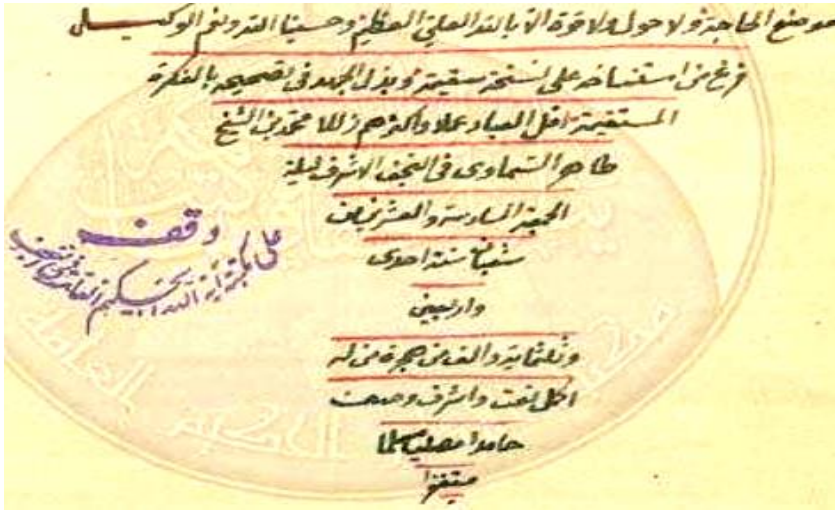 موضع الحاجة ولا حول ولا قوة الا بالله العلي العظيم وحسبنا الله ونعم الوكيل
فرغ من استنساخه على نسخة سقيمة وبذل الجهد في تصحيحه بالفكرة
المستقيمة اقل العباد عملا واكثرهم زللا محمد بن الشيخ
طاهر السماوي في النجف الاشرف ليلة
الجمعة السادسة والعشرين من
شعبان سنة احدى
واربعين
وثلثماية والف من هجرة من له
اكمل نعت واشرف وصف
حامدا مصليا مسلما
مستغفرا
وقف
على مكتبة آية الله الحكيم العامة في النجف